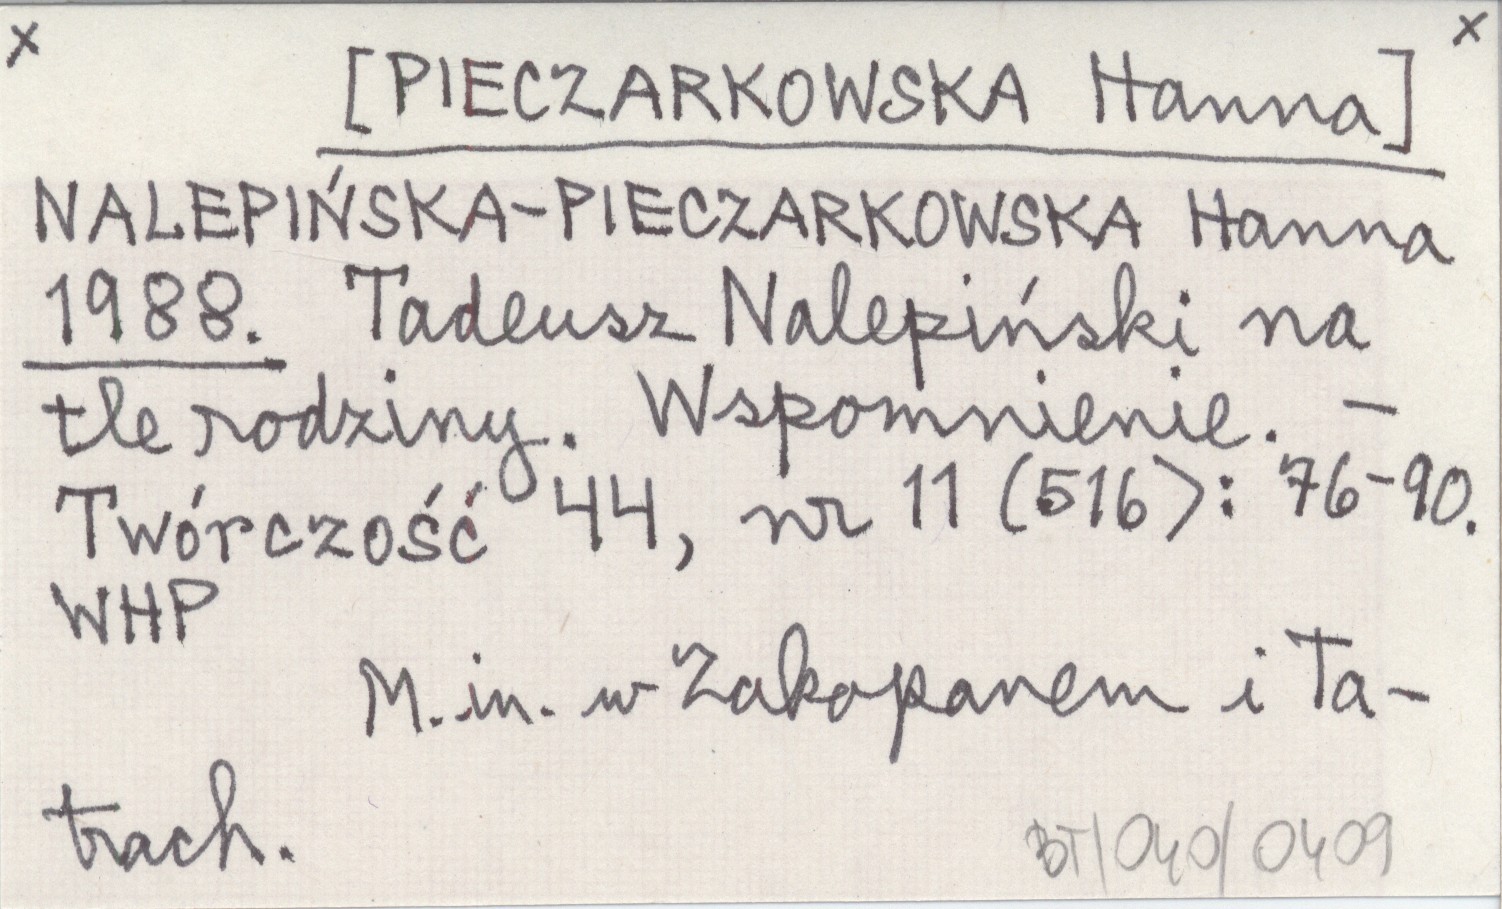 x x
[PIECZARKOWSKA Hanna]
NALEPIŃSKA-PIECZARKOWSKA Hanna
1988. Tadeusz Nalepiński na
tle rodziny. Wspomnienie. –
Twórczość 44, nr 11 (516): 76-90.
WHP
M.in. w Zakopanem i Ta-
trach.
BT/040/0409